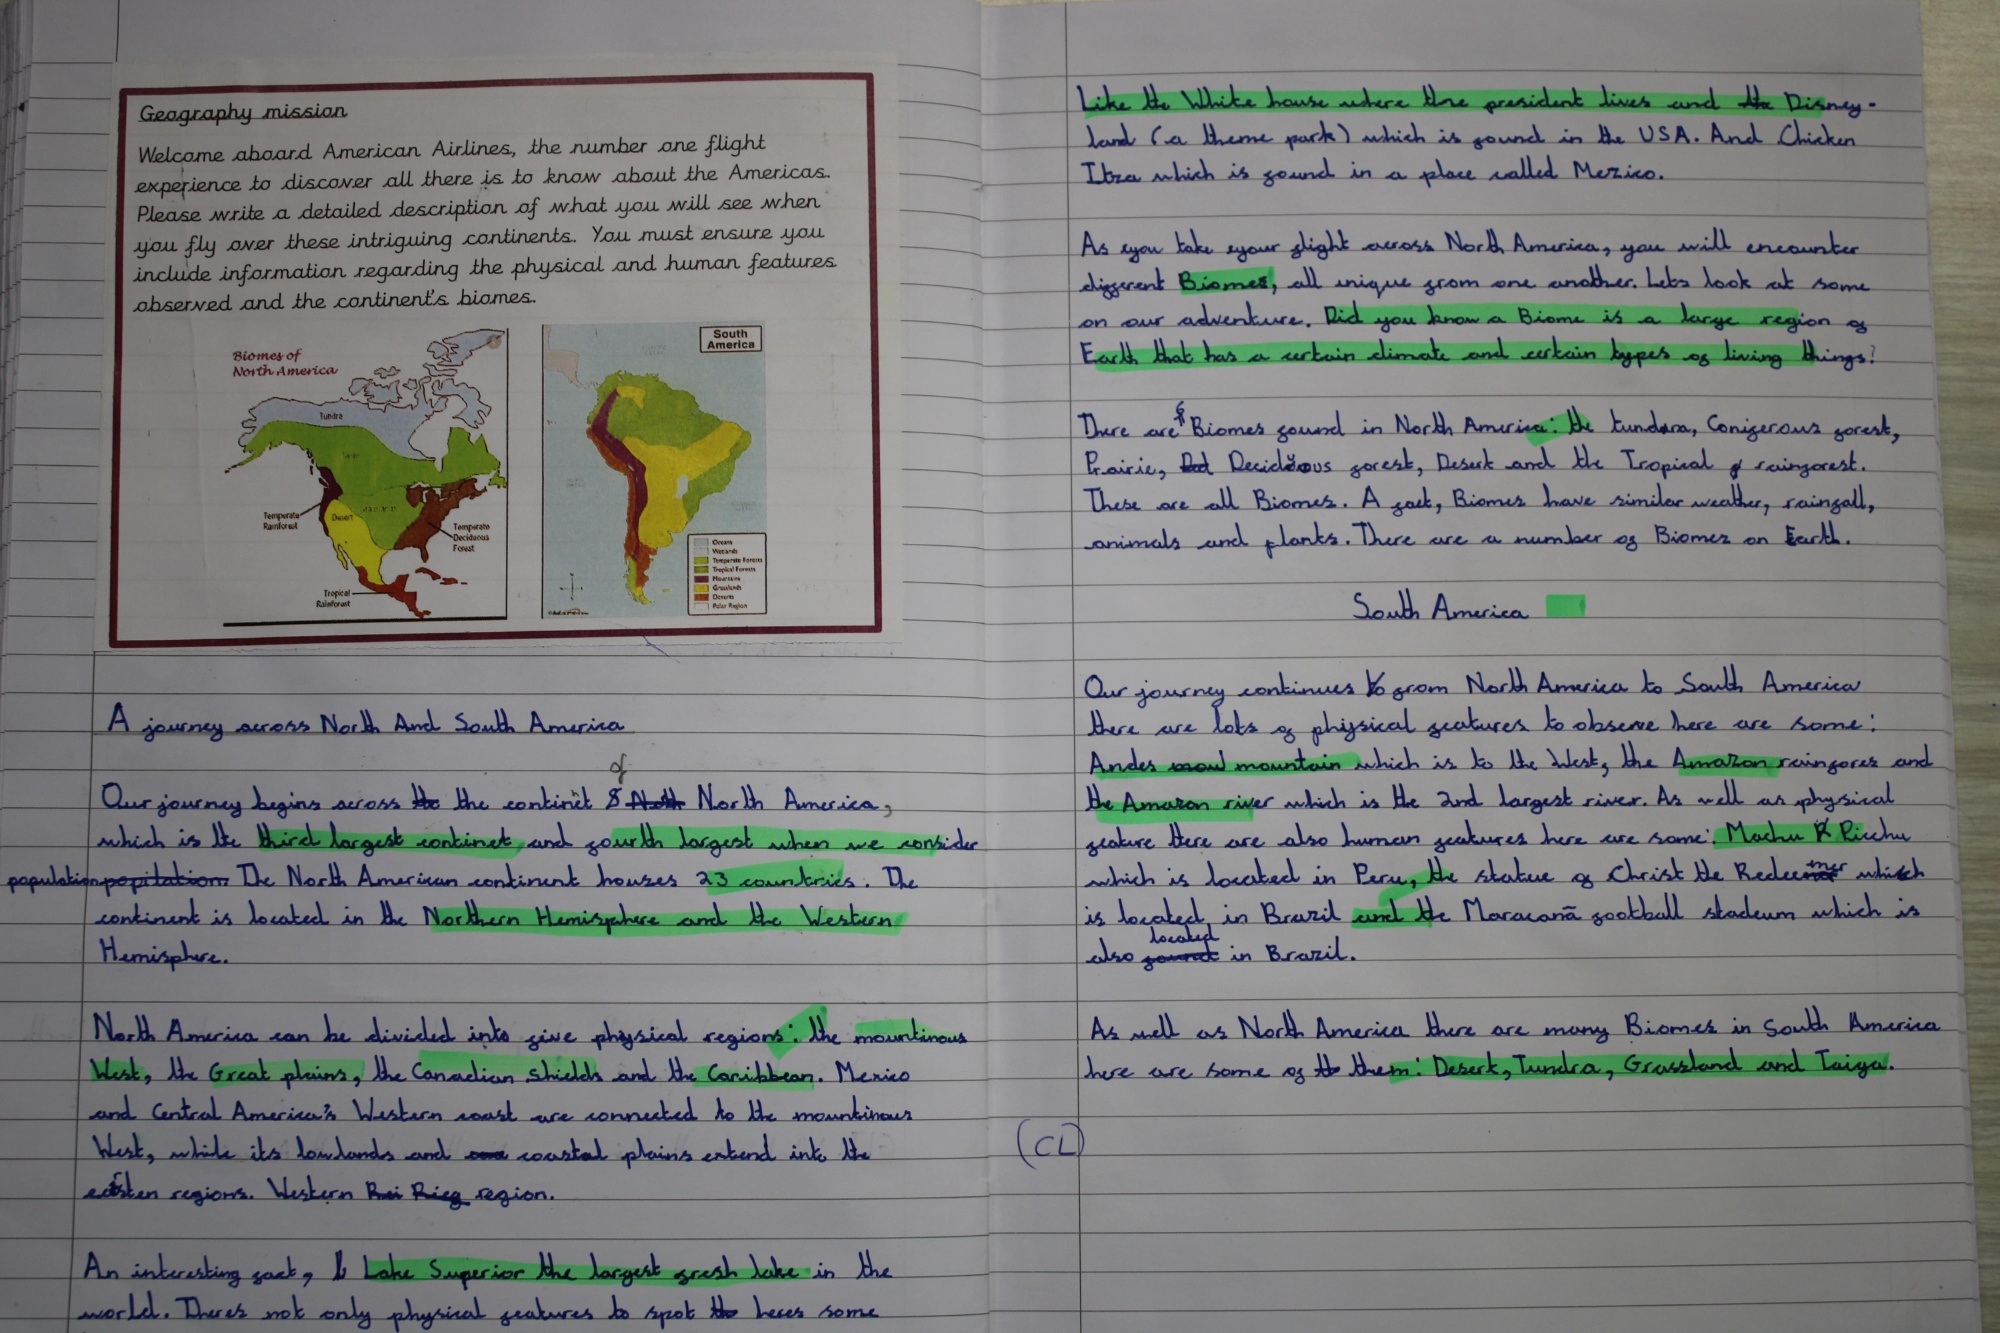 Geography mission
Welcome aboard American Airlines, the number one flight
experience to discover all there is to know about the Americas.
Please write a detailed description of what you will see when
you fly over these intriguing continents. You must ensure you
include information regarding the physical and human features
observed and the continent's biomes.
Biomes of
North America
Tundra
Desert
Temperate
Rainforest
Temperate
Deciduous
Forest
Tropical
Rainforest
South
America
Ocean
Wetlands
Temperate Forests
Tropical Forests
Mountains
Grasslands
Deserts
Polar Region
A journey across North And South America
of
Our journey begins across the the continet North North America,
which is the third largest continet and fourth largest when we consider
population popilation. The North American continent houses 23 countries. The
continent is located in the Northern Hemisphere and the Western
Hemisphere.
North America can be divided into five physical regions: the mountinous
West, the Great plains, the Canadian shields and the Caribbean. Mexico
and Central America's Western coast are connected to the mountinous
West, while its lowlands and coastal plains extend into the
easten regions. Western region.
An interesting fact, Lake Superior the largest fresh lake in the
world. Theres not only physical features to spot the heres some
Like the White house where the president lives and the Disney-
land (a theme park) which is found in the USA. And Chicken
Itza which is found in a place called Mexico.
As you take your flight across North America, you will encounter
different Biomes, all unique from one another. Lets look at some
on our adventure. Did you know a Biome is a large region of
Earth that has a certain climate and certain types of living things?
There are 6 Biomes found in North America: the tundra, Coniferous forest,
Prairie, Deciduous forest, Desert and the Tropical rainforest.
These are all Biomes. A fact, Biomes have similar weather, rainfall,
animals and plants. There are a number of Biomes on Earth.
South America
Our journey continues to from North America to South America
there are lots of physical features to observe here are some:
Andes mountain which is to the West, the Amazon rainfores and
the Amazon river which is the 2nd largest river. As well as physical
feature there are also human features here are some: Machu Picchu
which is located in Peru, the statue of Christ the Redeemer which
is located in Brazil and the Maracanã football stadeum which is
also found located in Brazil.
As well as North America there are many Biomes in South America
here are some of them: Desert, Tundra, Grassland and Taiga.
(CL)